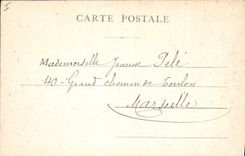 CARTE POSTALE
Mademoiselle Jeanne Pelé
40 - Grand chemin de Toulon
Marseille